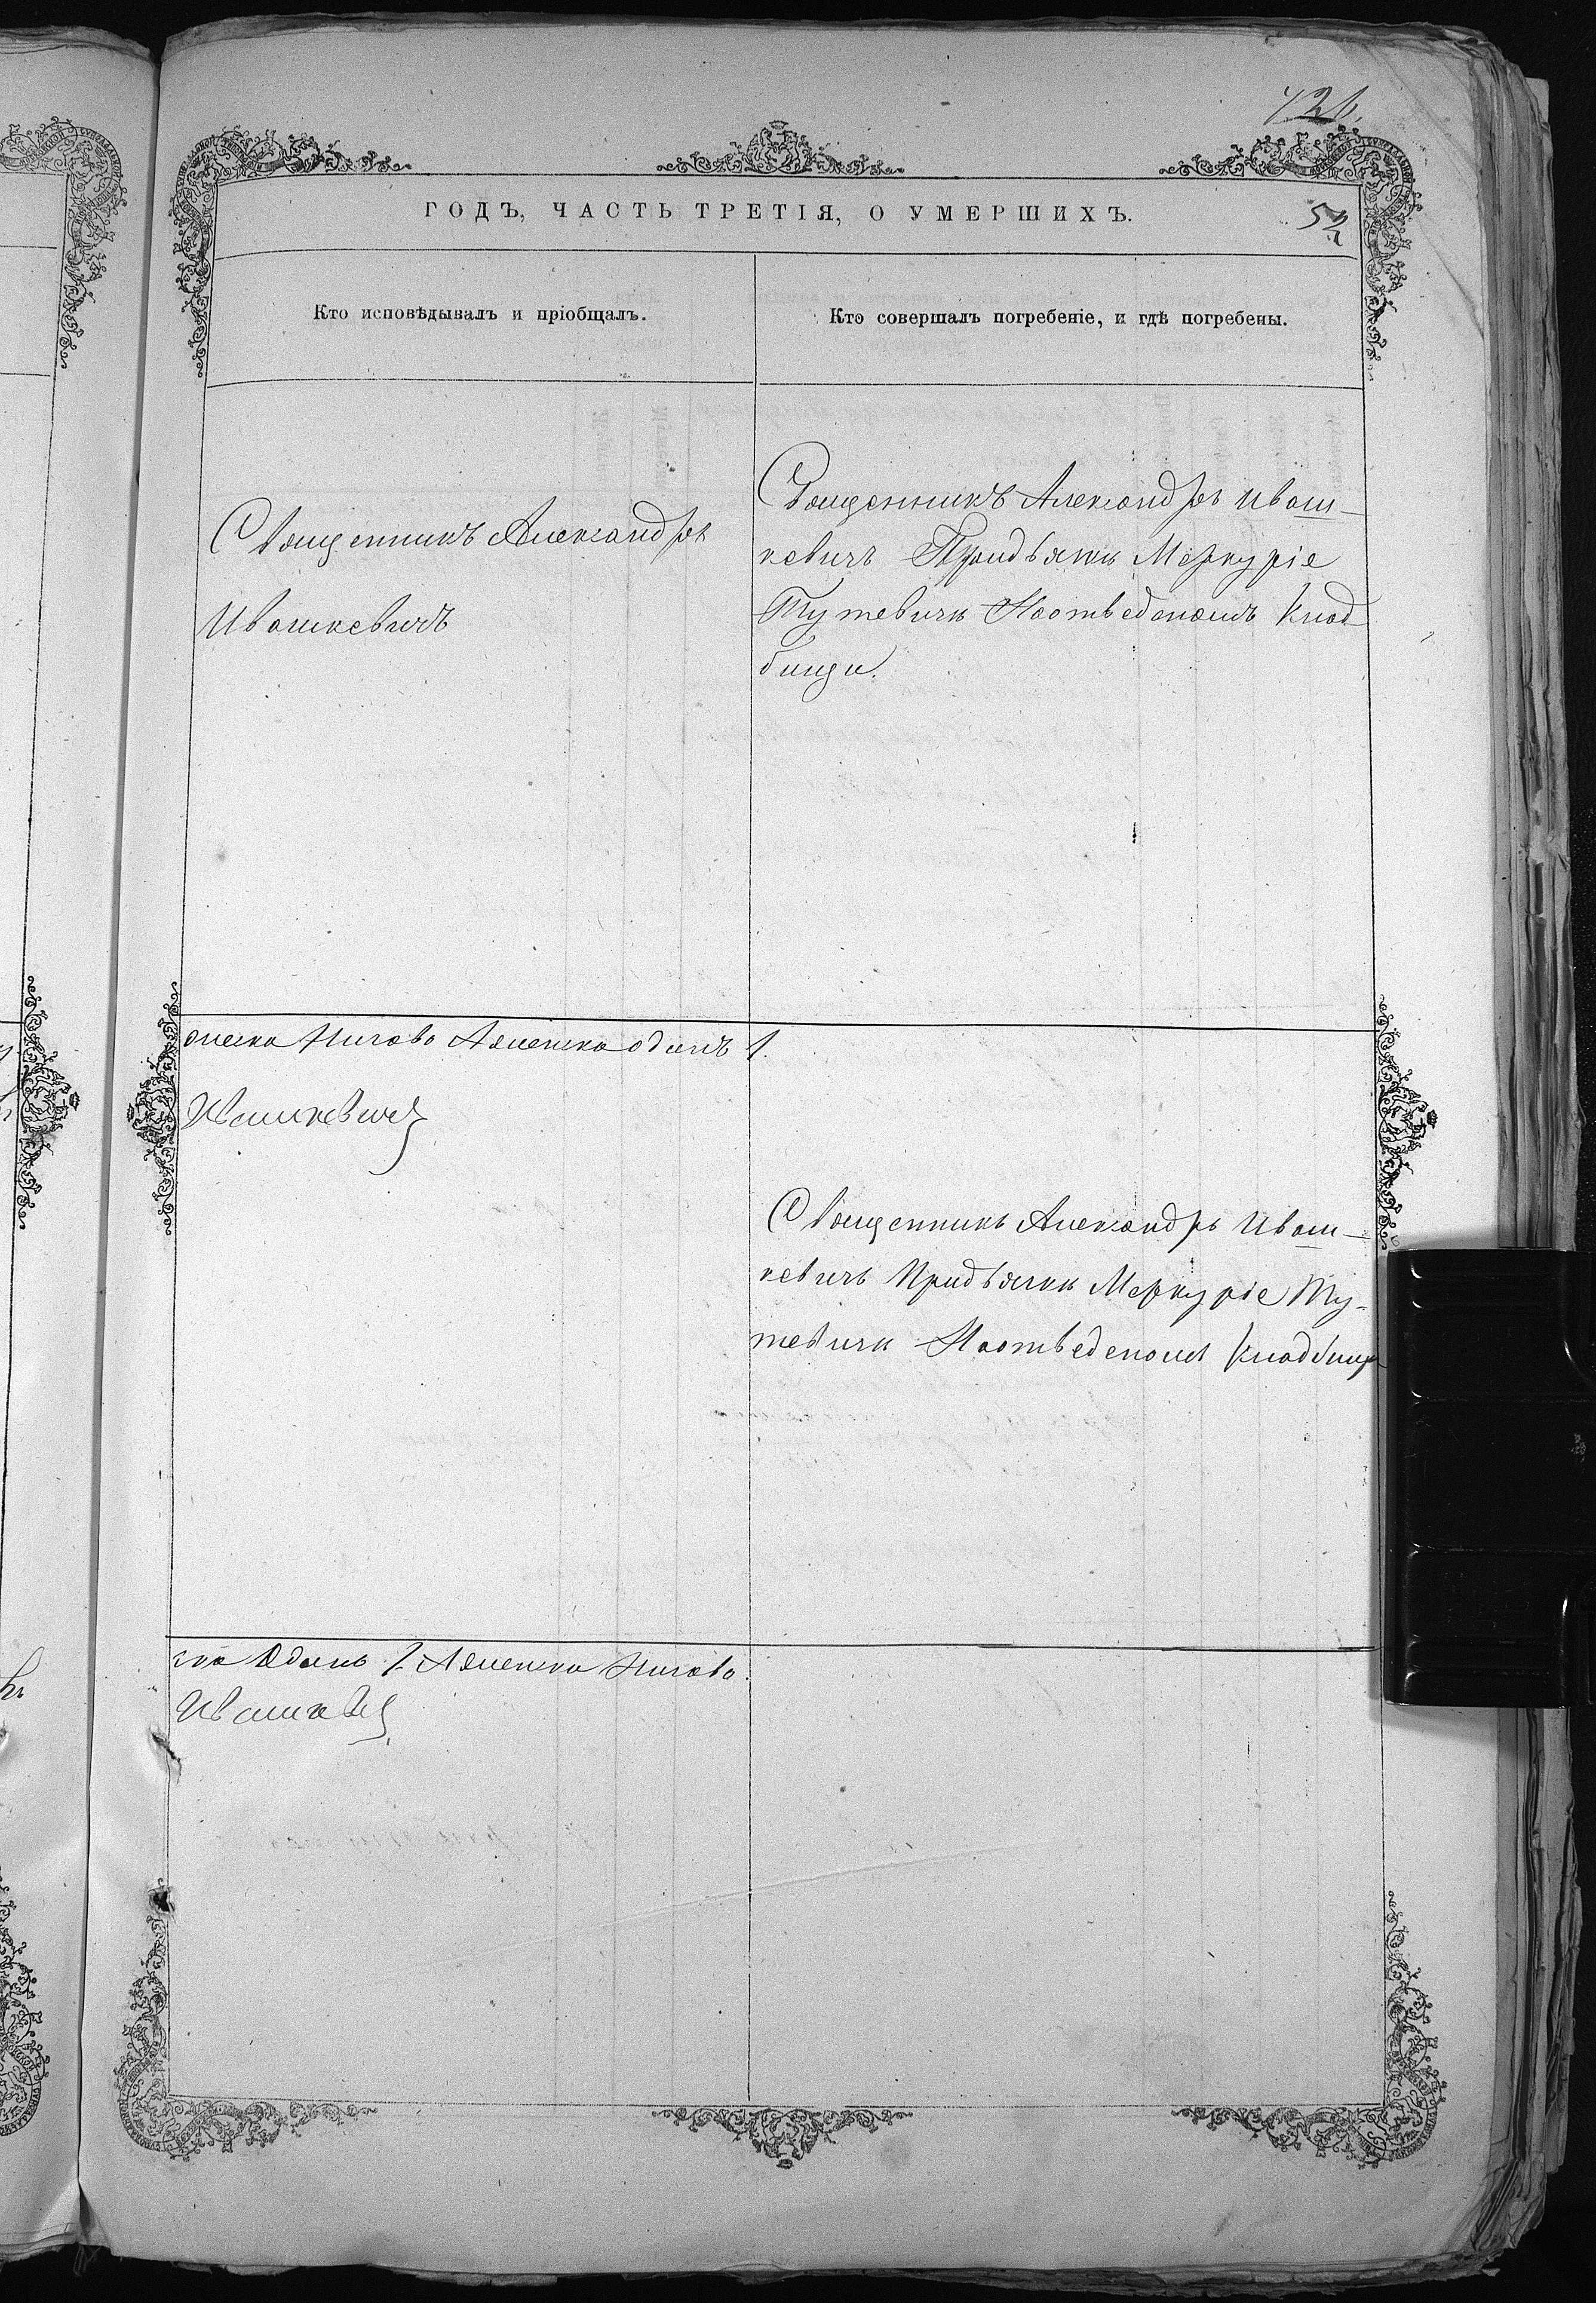 426.
ГОДЪ, ЧАСТЬ ТРЕТІЯ, О УМЕРШИХЪ.
52
Кто исповѣдывалъ и пріобщалъ.
Кто совершалъ погребеніе, и гдѣ погребены.
Священникъ Александръ
Ивашкевичъ
Священникъ Александръ Иваш-
кевичъ Придъячки Меркуріе
Тутевичи На отведеномъ клад
бищи.
женска Ничево Аженска одинъ 1.
Ивашкевичъ
Священникъ Александръ Иваш-
кевичъ Придъячки Меркуріе Ту-
тевичи На отведеномъ кладбищи
ска Одинъ 1. Аженска Ничево.
Ивашкевичъ